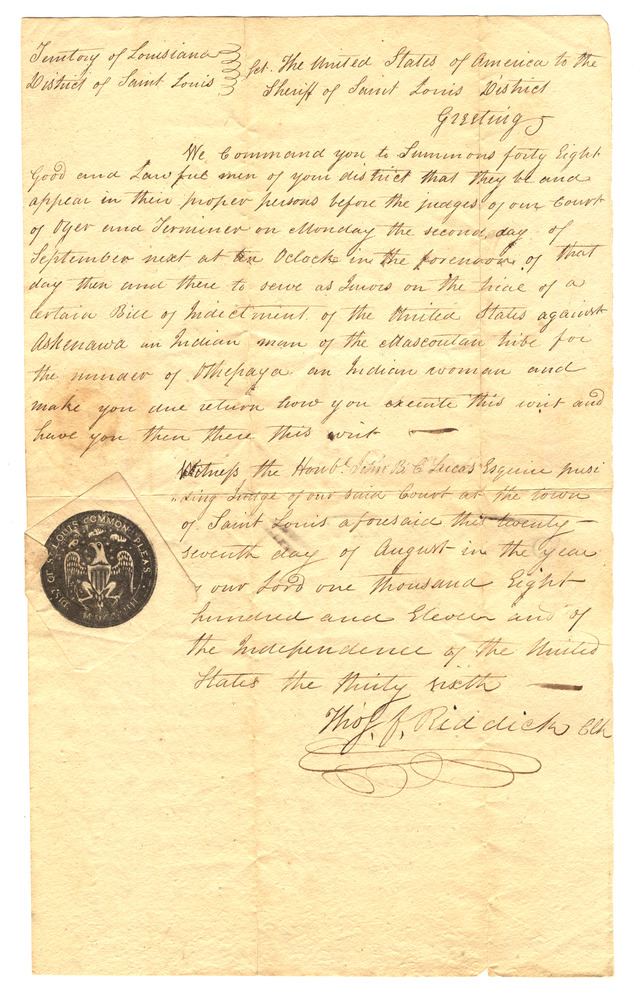 Territory of Louisiana
District of Saint Louis
Sct. The United States of America to the
Sheriff of Saint Louis District
Greeting
We Command you to Summons forty Eight
Good and Lawful men of your district that they be and
appear in their proper persons before the judges of our Court
of Oyer and Terminer on Monday the second day of
September next at ten Oclock in the forenoon of that
day then and there to serve as Jurors on the trial of a
certain Bill of Indictment of the United States against
Askenawa an Indian man of the Mascoutan tribe for
the murder of Othepaya an Indian woman and
make you due return how you execute this writ and
have you then there this writ —
Witness the Honbl. John B. C. Lucas Esquire presi
"ding Judge of our said Court at the town
of Saint Louis aforesaid this twenty—
seventh day of August in the year
of our Lord one thousand Eight
hundred and Eleven and of
the Independence of the United
States the thirty sixth —
Thos. F. Riddick Clk
DIST. OF ST. LOUIS COMMON PLEAS